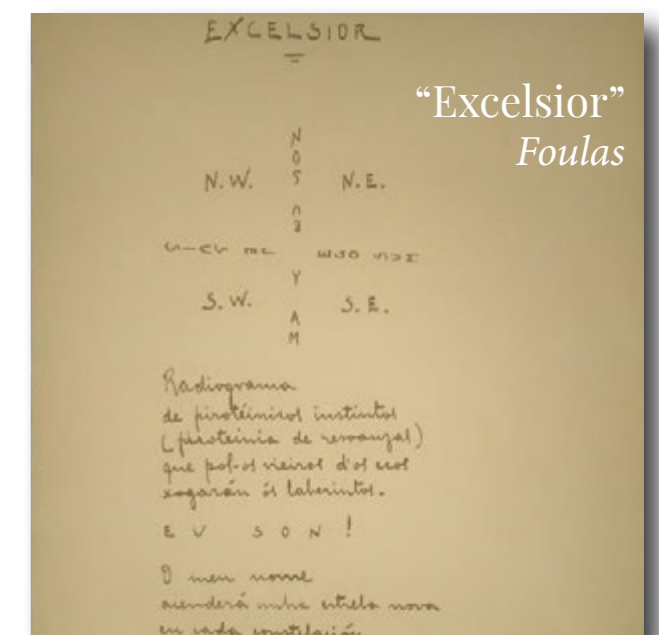 EXCELSIOR
“Excelsior”
Foulas
N.W.
N.E.
S.W.
S.E.
Radiograma
de pirotéinicos instintos
(piroteinia de remanzal)
que pol-os vieiros d'os ecos
xogarán ós laberintos.
EU SON!
O meu nome
acenderá unha estrela nova
en cada constelación